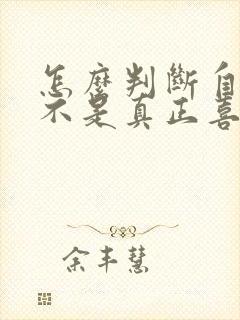 怎麼判斷自
不是真正喜
余丰慧